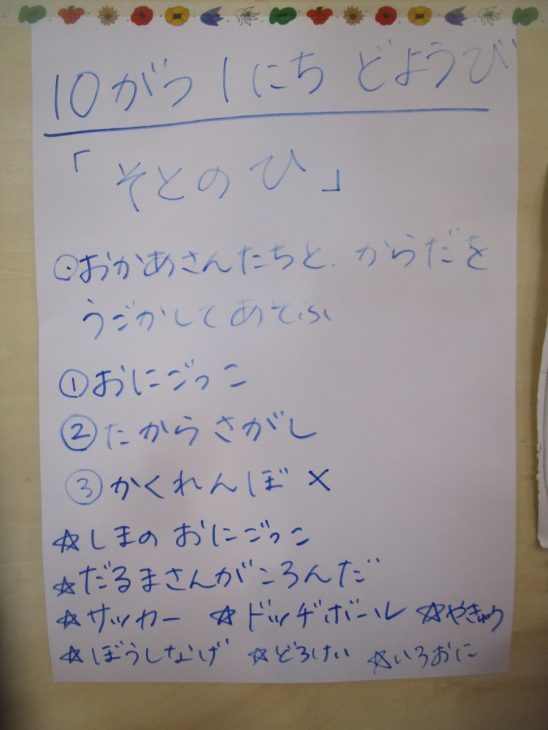 10がつ1にち どようび
「そとのひ」
⊙おかあさんたちと からだを
うごかしてあそぶ
①おにごっこ
②たからさがし
③かくれんぼ×
☆しまのおにごっこ
☆だるまさんがころんだ
☆サッカー ☆ドッヂボール ☆やきゅう
☆ぼうしなげ ☆どろけい ☆いろおに